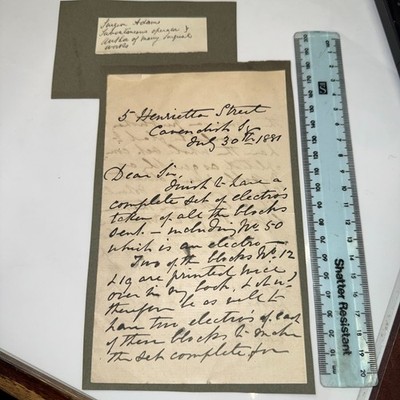 Surgeon Adams
Subcutaneous operator &
author of many Surgical
works
5 Henrietta Street
Cavendish Sq
July 30th 1881
Dear Sir,
I wish to have a
complete set of electros
taken of all the blocks
sent. – including No. 50
which is an electro –
Two of the blocks No. 12
& 19 are printed twice
over in my book, & it w
therefore be as well to
have two electros of each
of these blocks to make
the set complete for
Shatter Resistant